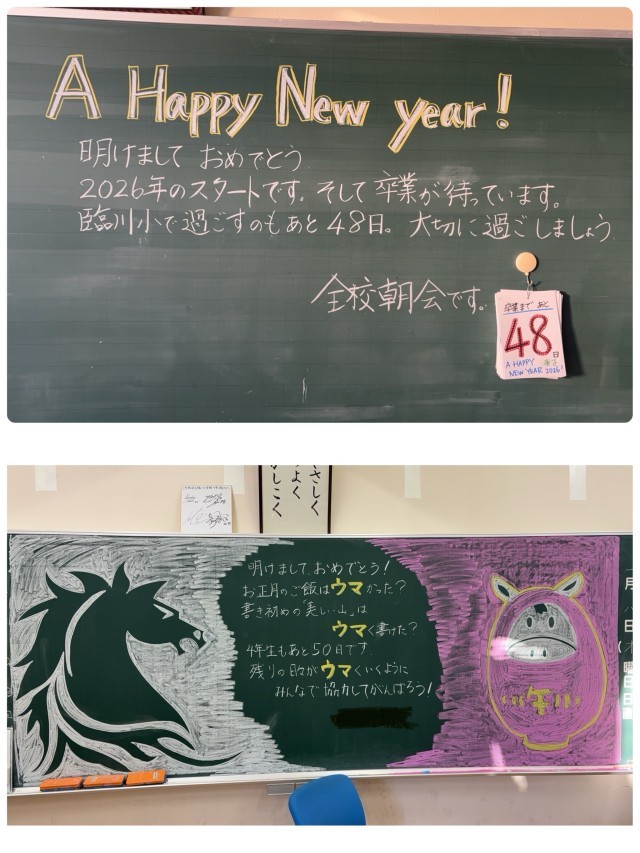 A Happy New year!
明けまして おめでとう
2026年のスタートです。そして卒業が待っています。
臨川小で過ごすのもあと48日。大切に過ごしましょう
全校朝会です。
卒業まであと
48
日
A HAPPY
NEW YEAR 2026!
さしく
よく
しこく
明けまして、おめでとう!
お正月のご飯はウマかった?
書き初めの「美しい山」は
ウマく書けた?
4年生もあと50日です。
残りの日々がウマくいくように
みんなで協力してがんばろう!
月
日